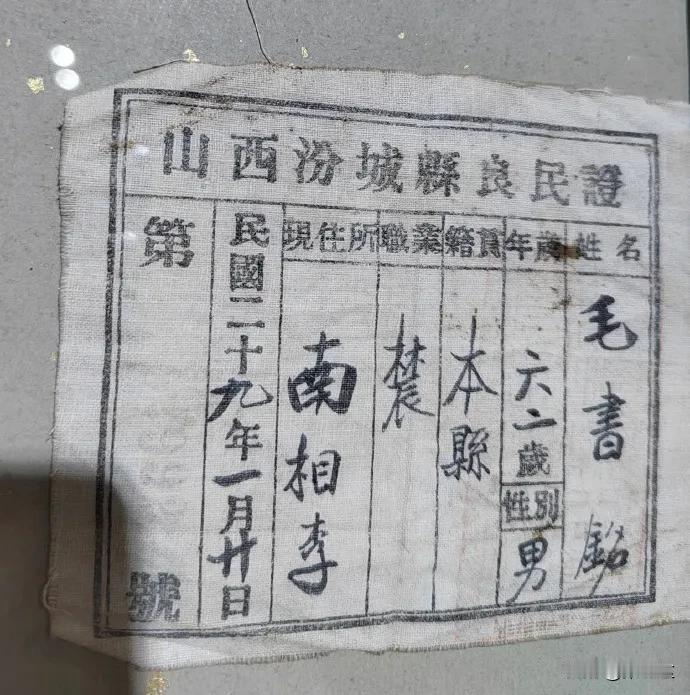 山西汾城縣良民證
姓名
毛書銘
年歲
六二歲
性別
男
籍貫
本縣
職業
農
現住所
南相李
民國二十九年一月廿日
第 號